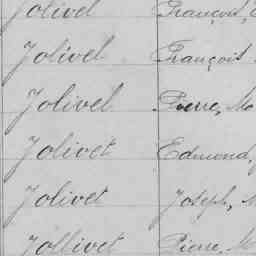 Jolivel François,
Jolivel François
Jolivel Pierre, Ma
Jolivet Edmond,
Jolivet Joseph, M
Jollivet Pierre, M